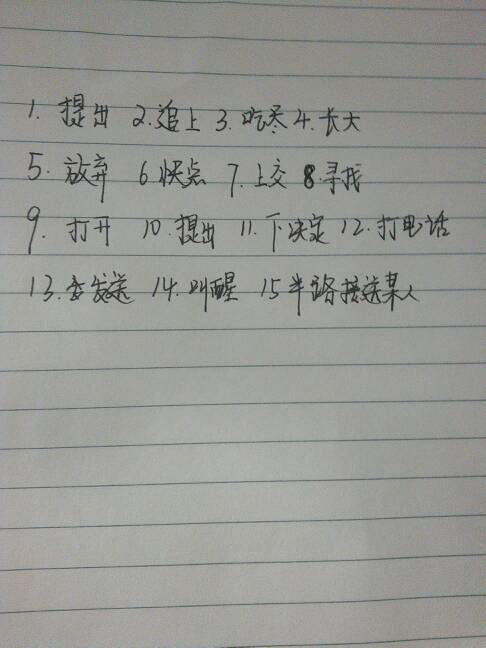 1. 提出 2.追上 3.吃尽 4.长大
5. 放弃 6.快点 7.上交 8.寻找
9. 打开 10.提出 11.下决定 12.打电话
13.发送 14.叫醒 15半路接送某人